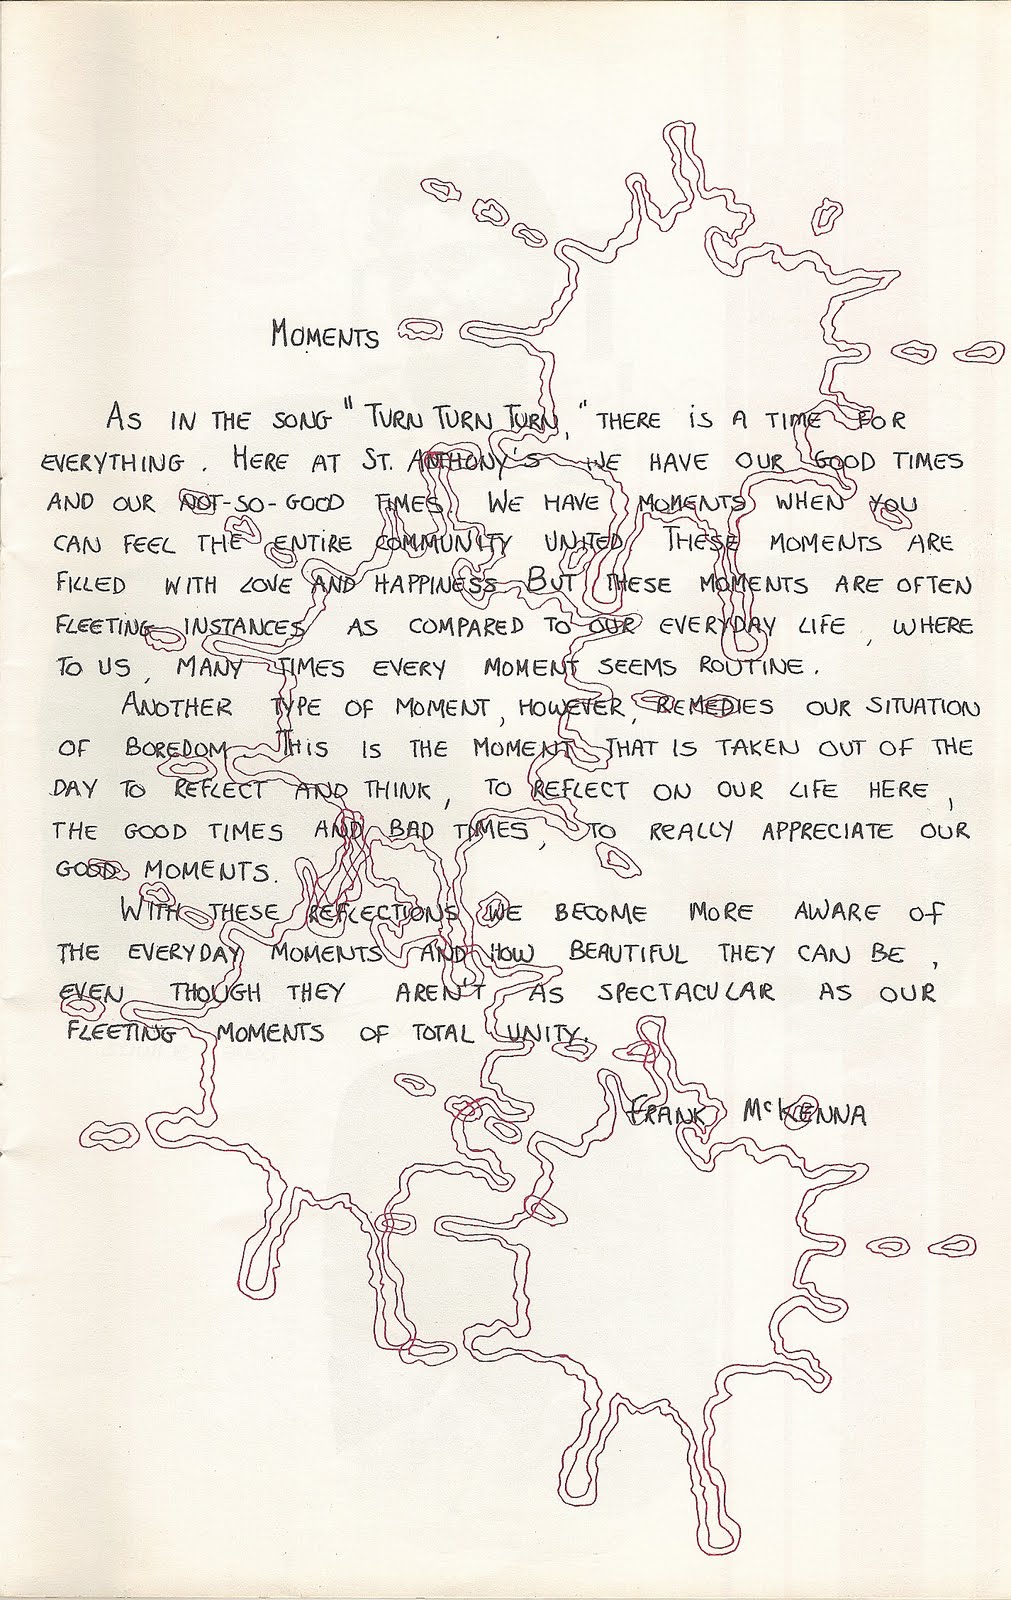 MOMENTS
AS IN THE SONG "TURN TURN TURN," THERE IS A TIME FOR
EVERYTHING. HERE AT ST. ANTHONY'S WE HAVE OUR GOOD TIMES
AND OUR NOT-SO-GOOD TIMES. WE HAVE MOMENTS WHEN YOU
CAN FEEL THE ENTIRE COMMUNITY UNITED. THESE MOMENTS ARE
FILLED WITH LOVE AND HAPPINESS. BUT THESE MOMENTS ARE OFTEN
FLEETING INSTANCES AS COMPARED TO OUR EVERYDAY LIFE, WHERE
TO US, MANY TIMES EVERY MOMENT SEEMS ROUTINE.
ANOTHER TYPE OF MOMENT, HOWEVER, REMEDIES OUR SITUATION
OF BOREDOM. THIS IS THE MOMENT THAT IS TAKEN OUT OF THE
DAY TO REFLECT AND THINK, TO REFLECT ON OUR LIFE HERE,
THE GOOD TIMES AND BAD TIMES, TO REALLY APPRECIATE OUR
GOOD MOMENTS.
WITH THESE REFLECTIONS WE BECOME MORE AWARE OF
THE EVERYDAY MOMENTS AND HOW BEAUTIFUL THEY CAN BE,
EVEN THOUGH THEY AREN'T AS SPECTACULAR AS OUR
FLEETING MOMENTS OF TOTAL UNITY.
FRANK McKENNA